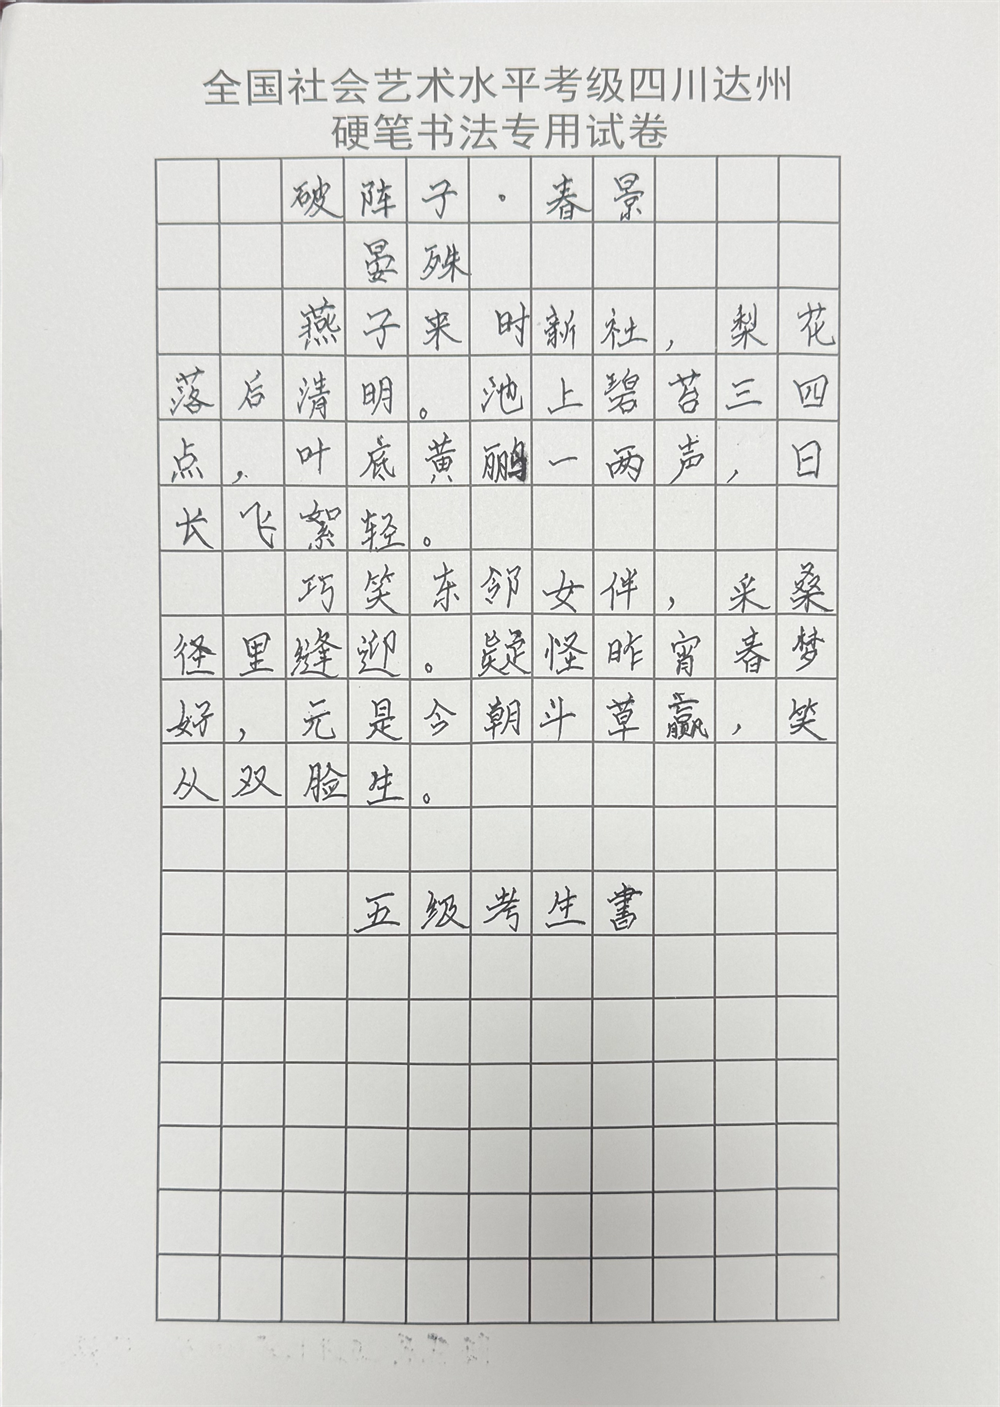 全国社会艺术水平考级四川达州
硬笔书法专用试卷
破阵子·春景
晏殊
燕子来时新社，梨花
落后清明。池上碧苔三四
点，叶底黄鹂一两声，日
长飞絮轻。
巧笑东邻女伴，采桑
径里缝迎。疑怪昨宵春梦
好，元是今朝斗草赢，笑
从双脸生。
五级考生書